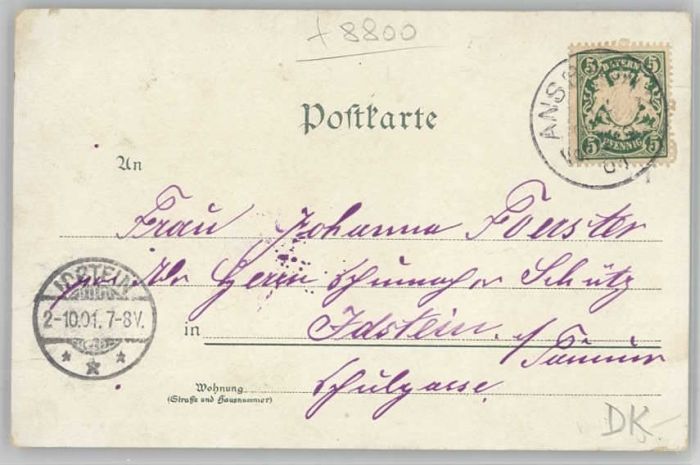 + 8800
5 BAYERN 5
5 PFENNIG 5
ANSB
01
Postkarte
An
Frau Johanna Foerster
Herrn Schumacher Schütz
IDSTEIN
2-10.01. 7-8V.
* * *
in Idstein. i/Taunus
Schulgasse.
Wohnung
(Straße und Hausnummer)
DK-